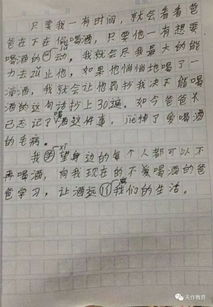 只要我一有时间，就会看看爸
爸在不在偷喝酒，只要他一有想要
喝酒的动，我就会尽我最大的能
力去阻止他，如果他悄悄地喝了一
滴酒，我就会让他罚抄我决不能喝
酒的这句话抄上30遍，如今爸爸不
已忘记了酒这件事，戒掉了爱喝酒
的毛病。
我希望身边的每个人都可以不
再喝酒，向我现在的不爱喝酒的爸
爸学习，让酒远我们的生活。
天作教育